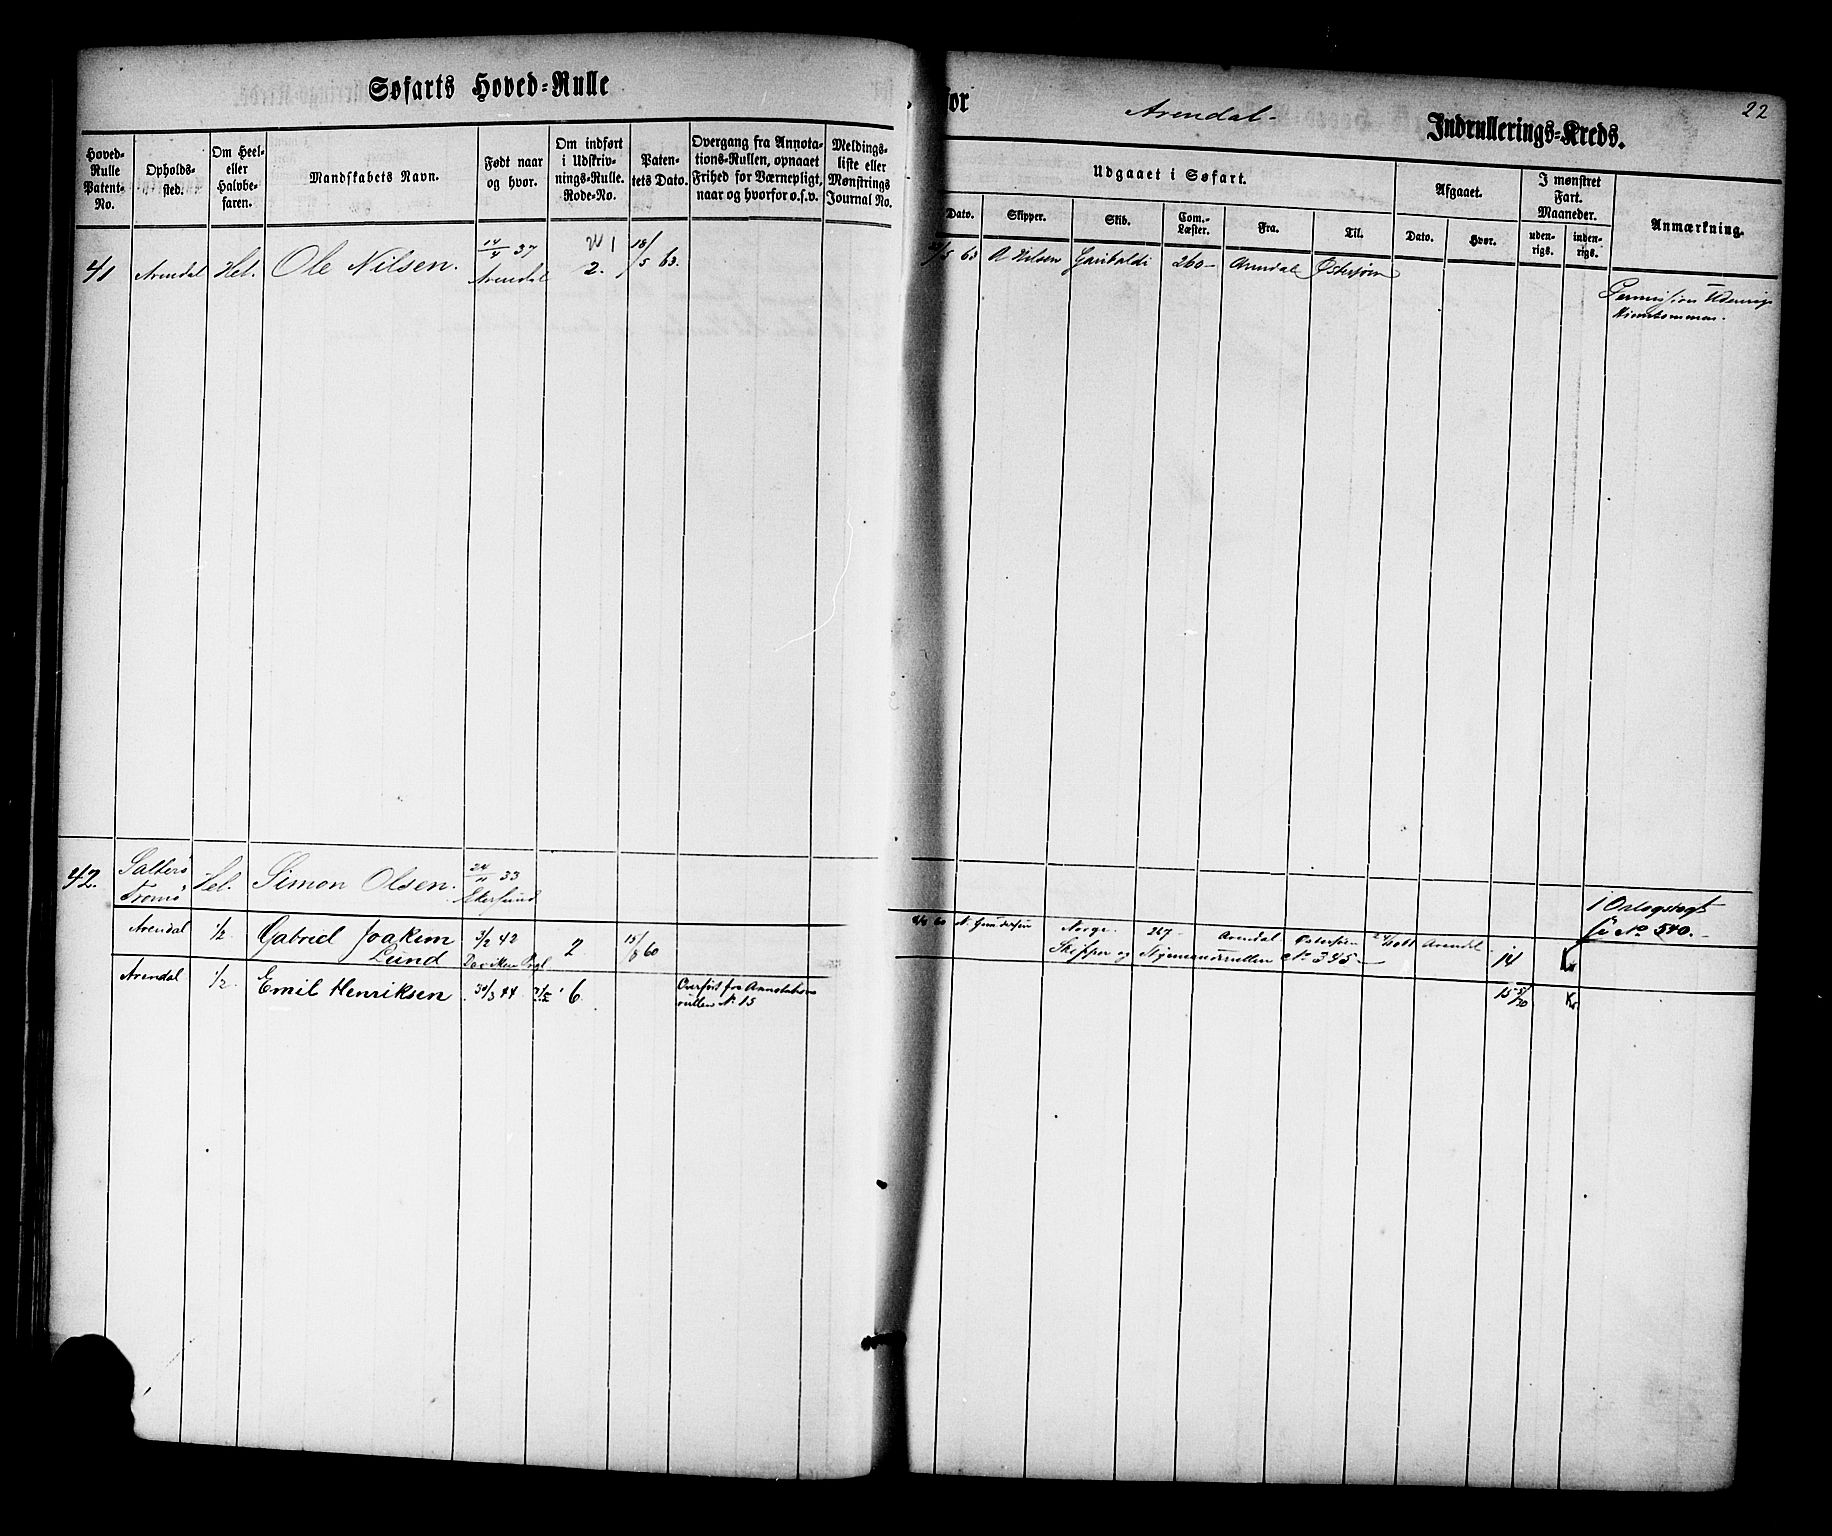 Søfarts Hoved-Rulle
for Arendal- Indrullerings-Kreds.
22
Hoved-Rulle Patent-No.
Opholds-sted.
Om Heel- eller Halvbe-faren.
Mandskabets Navn.
Født naar og hvor.
Om indført i Udskriv-nings-Rulle. Rode-No.
Paten-tets Dato.
Overgang fra Annota-tions-Rullen, opnaaet Frihed for Værnepligt, naar og hvorfor o.s.v.
Meldings-liste eller Mønstrings Journal No.
Udgaaet i Søfart.
Dato.
Skipper.
Skib.
Com.-Læster.
Fra.
Til.
Afgaaet.
Dato.
Hvor.
I mønstret Fart. Maaneder.
uden-rigs.
inden-rigs.
Anmærkning.
41 Arendal Hel. Ole Nilsen. 14/4 37 Arendal
2. 18/5 63.
/5 63 Nilsen Garibaldi 260- Arendal Østersjøen
Permission Udenrigs
Hjemkommen.
42. Salterø Tromø Hel. Simon Olsen. 24/11 33 Ekersund
I Orlogstogt
No 540.-
Arendal 1/2 Gabriel Joakim Lund 3/2 42
2 15/8 60
60 N. Gundersen Norge. 267 Arendal Østersøen Arendal 14
Skipper og Styrmandsrullen No 345-
Arendal 1/2 Emil Henriksen 30/3 44 6
Overført fra Annotations
rullen No 15
15 5/30